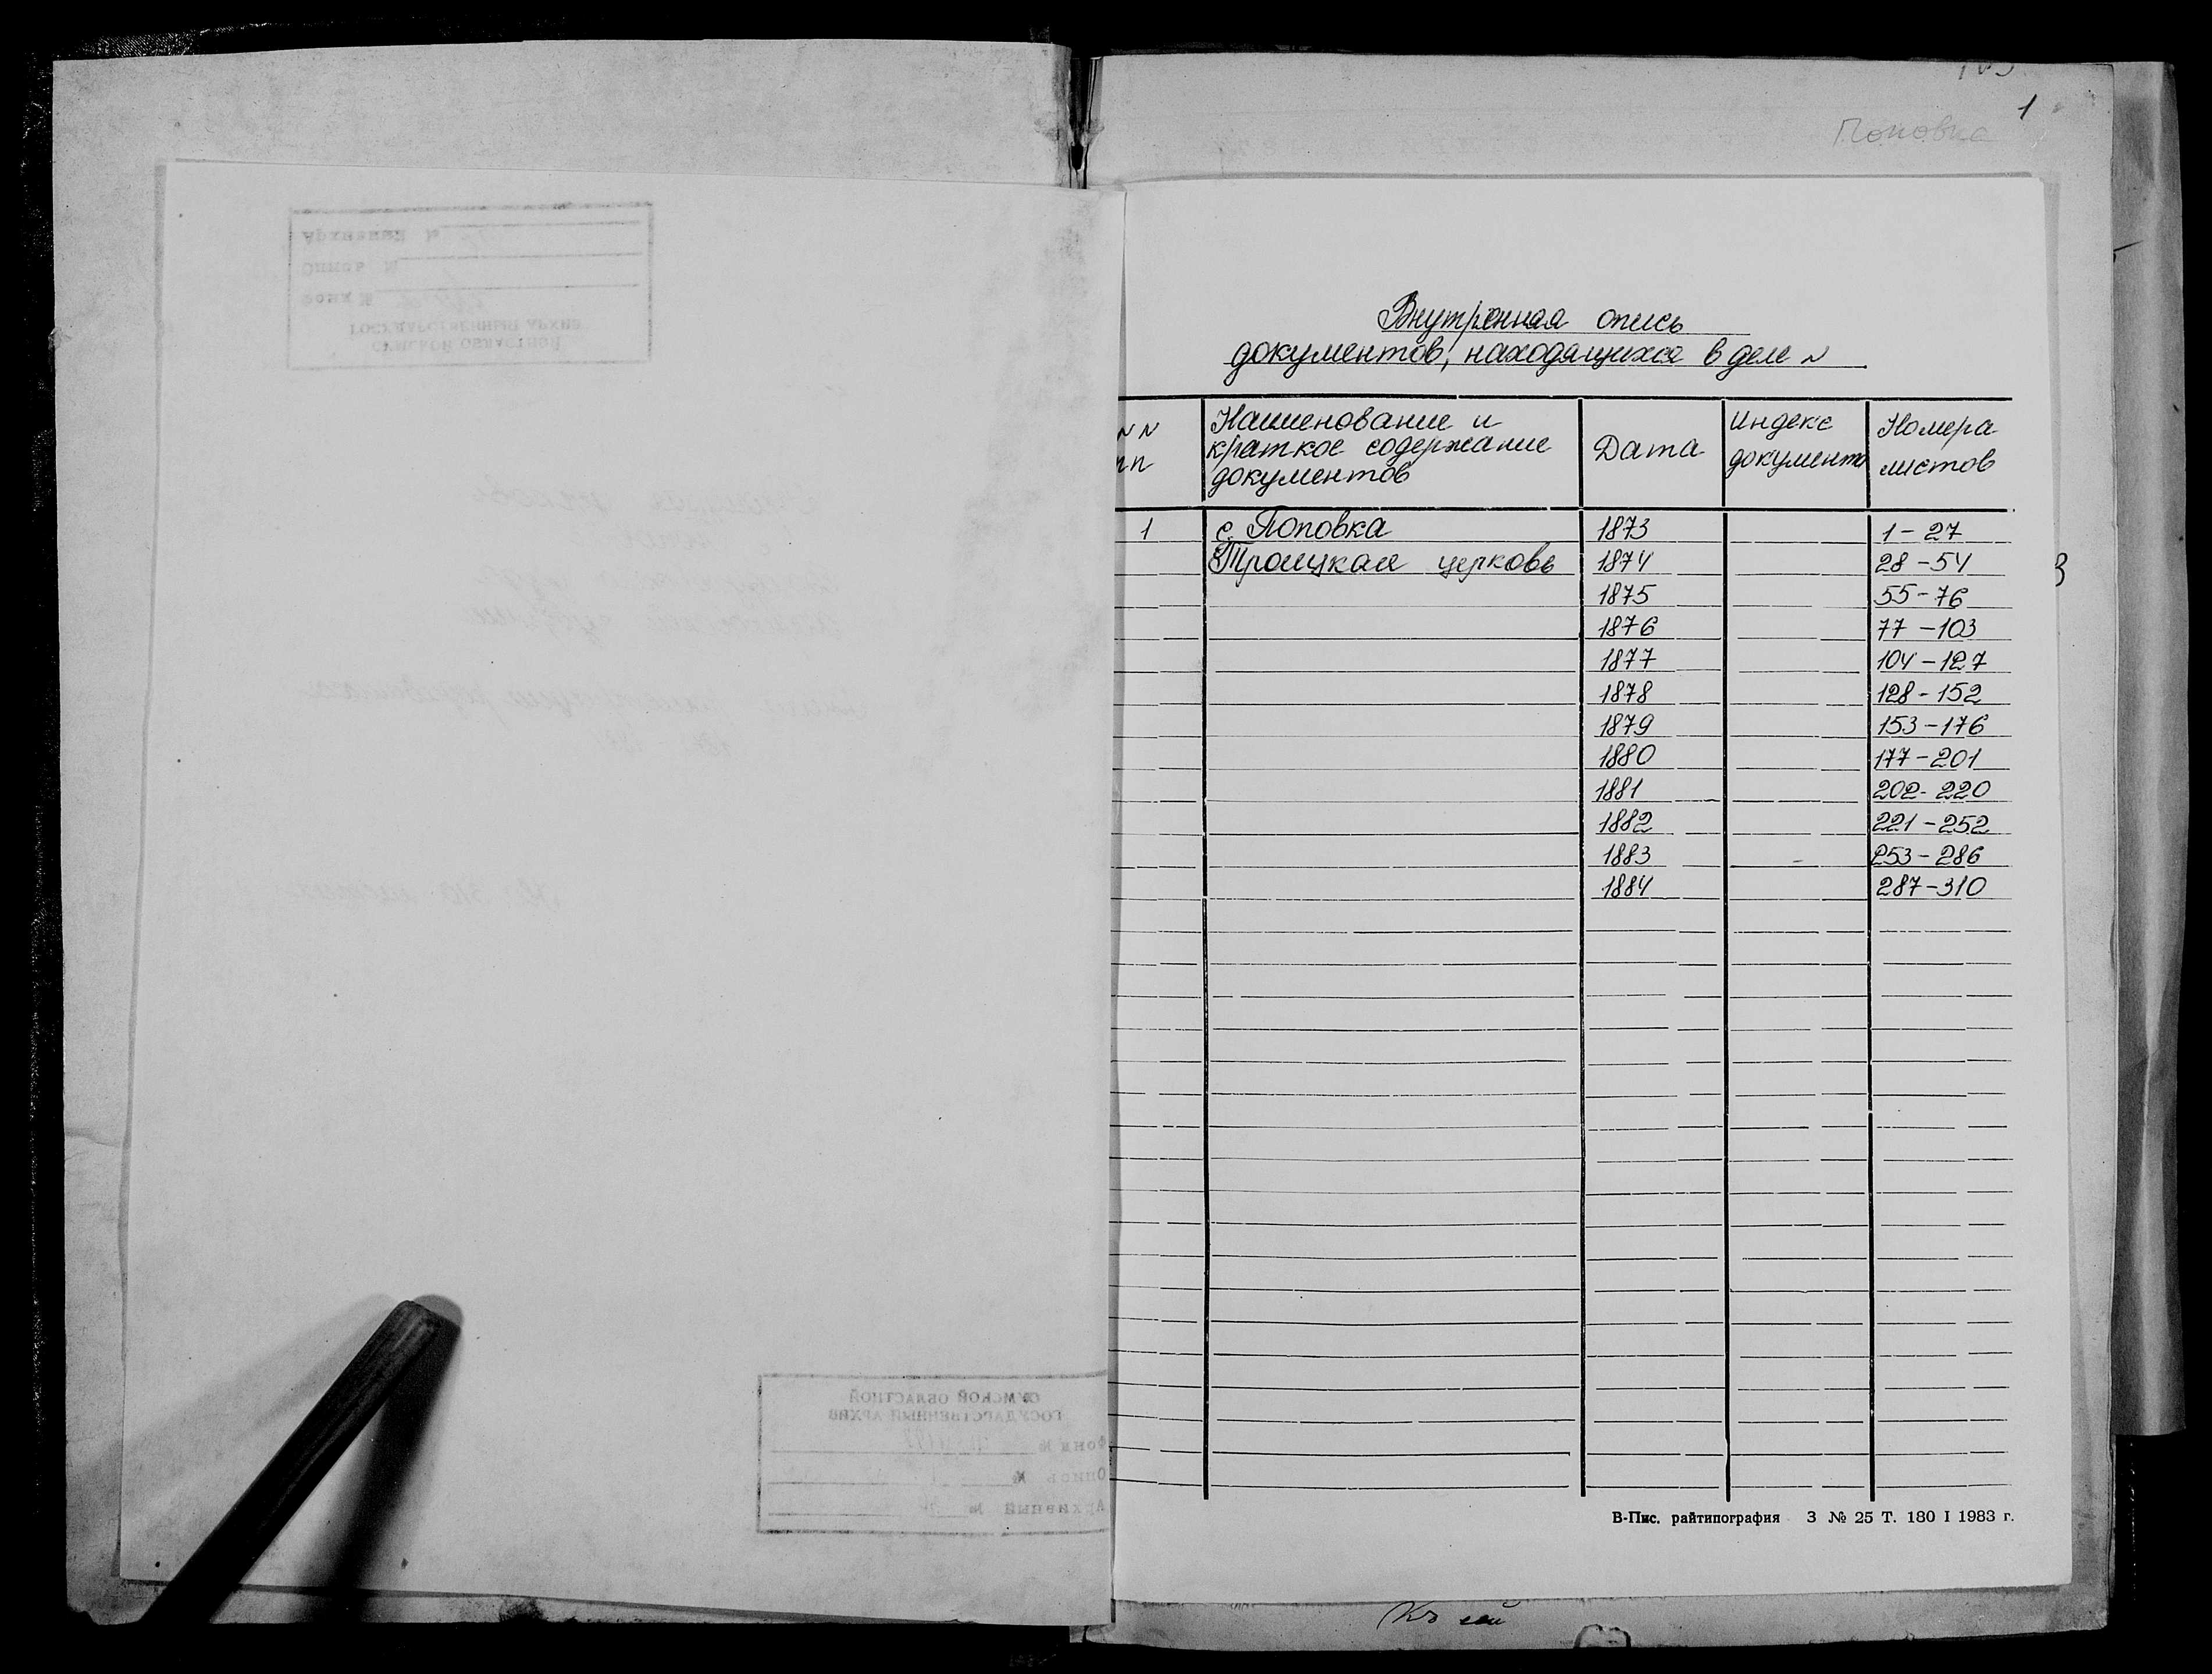 1
Поповка
Внутренная опись
документов, находящихся в деле №
№ № пп
Наименование и краткое содержание документов
Дата
Индекс документа
Номера листов
1 с. Поповка 1873 1-27
Троицкая церковь 1874 28-54
1875 55-76
1876 77-103
1877 104-127
1878 128-152
1879 153-176
1880 177-201
1881 202-220
1882 221-252
1883 253-286
1884 287-310
В-Пис. райтипография 3 № 25 Т. 180 I 1983 г.
СУМСКОЙ ОБЛАСТНОЙ
ГОСУДАРСТВЕННЫЙ АРХИВ
Фонд №
Опись №
Архивный №
СУМСКОЙ ОБЛАСТНОЙ
ГОСУДАРСТВЕННЫЙ АРХИВ
Фонд №
Опись №
Архивный №